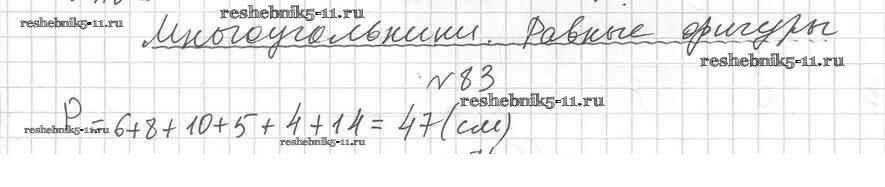 reshebnik5-11.ru
Многоугольники. Равные фигуры
reshebnik5-11.ru
№ 83
reshebnik5-11.ru
P = 6+8+10+5+4+14 = 47 (см)
reshebnik5-11.ru
reshebnik5-11.ru